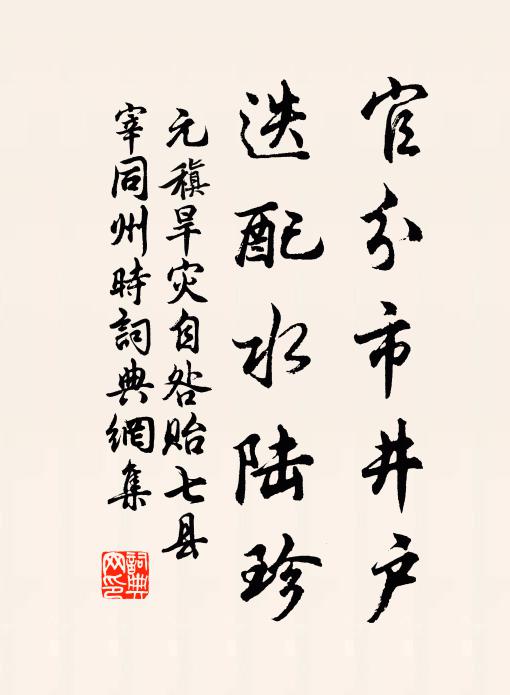 官分市井户
迭配水陆珍
元稹旱灾自咎贻七县
宰同州時詞典網集
詞典
网印